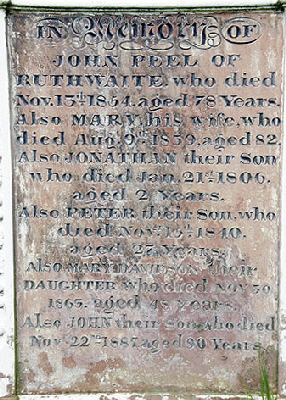 In Memory OF
JOHN PEEL OF
RUTHWAITE, who died
Nov. 13th 1854, aged 78 Years.
Also MARY, his wife, who
died Aug. 9th 1859, aged 82.
Also JONATHAN their Son
who died Jan. 21st 1806,
aged 2 Years.
Also PETER their Son, who
died Nov. 15th 1840,
aged 27 Years.
Also MARY DAVIDSON their
DAUGHTER who died NOV 30
1863, aged 48 Years.
Also JOHN their Son, who died
Nov. 22nd 1887, aged 90 Years.